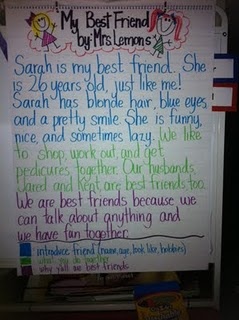 My Best Friend
by: Mrs. Lemons
Sarah is my best friend. She
is 26 years old, just like me!
Sarah has blonde hair, blue eyes,
and a pretty smile. She is funny,
nice, and sometimes lazy. We like
to shop, work out, and get
pedicures together. Our husbands,
Jared and Kent, are best friends, too.
We are best friends because we
can talk about anything and
we have fun together.
introduce friend (name, age, look like, hobbies)
what you do together
why y'all are best friends